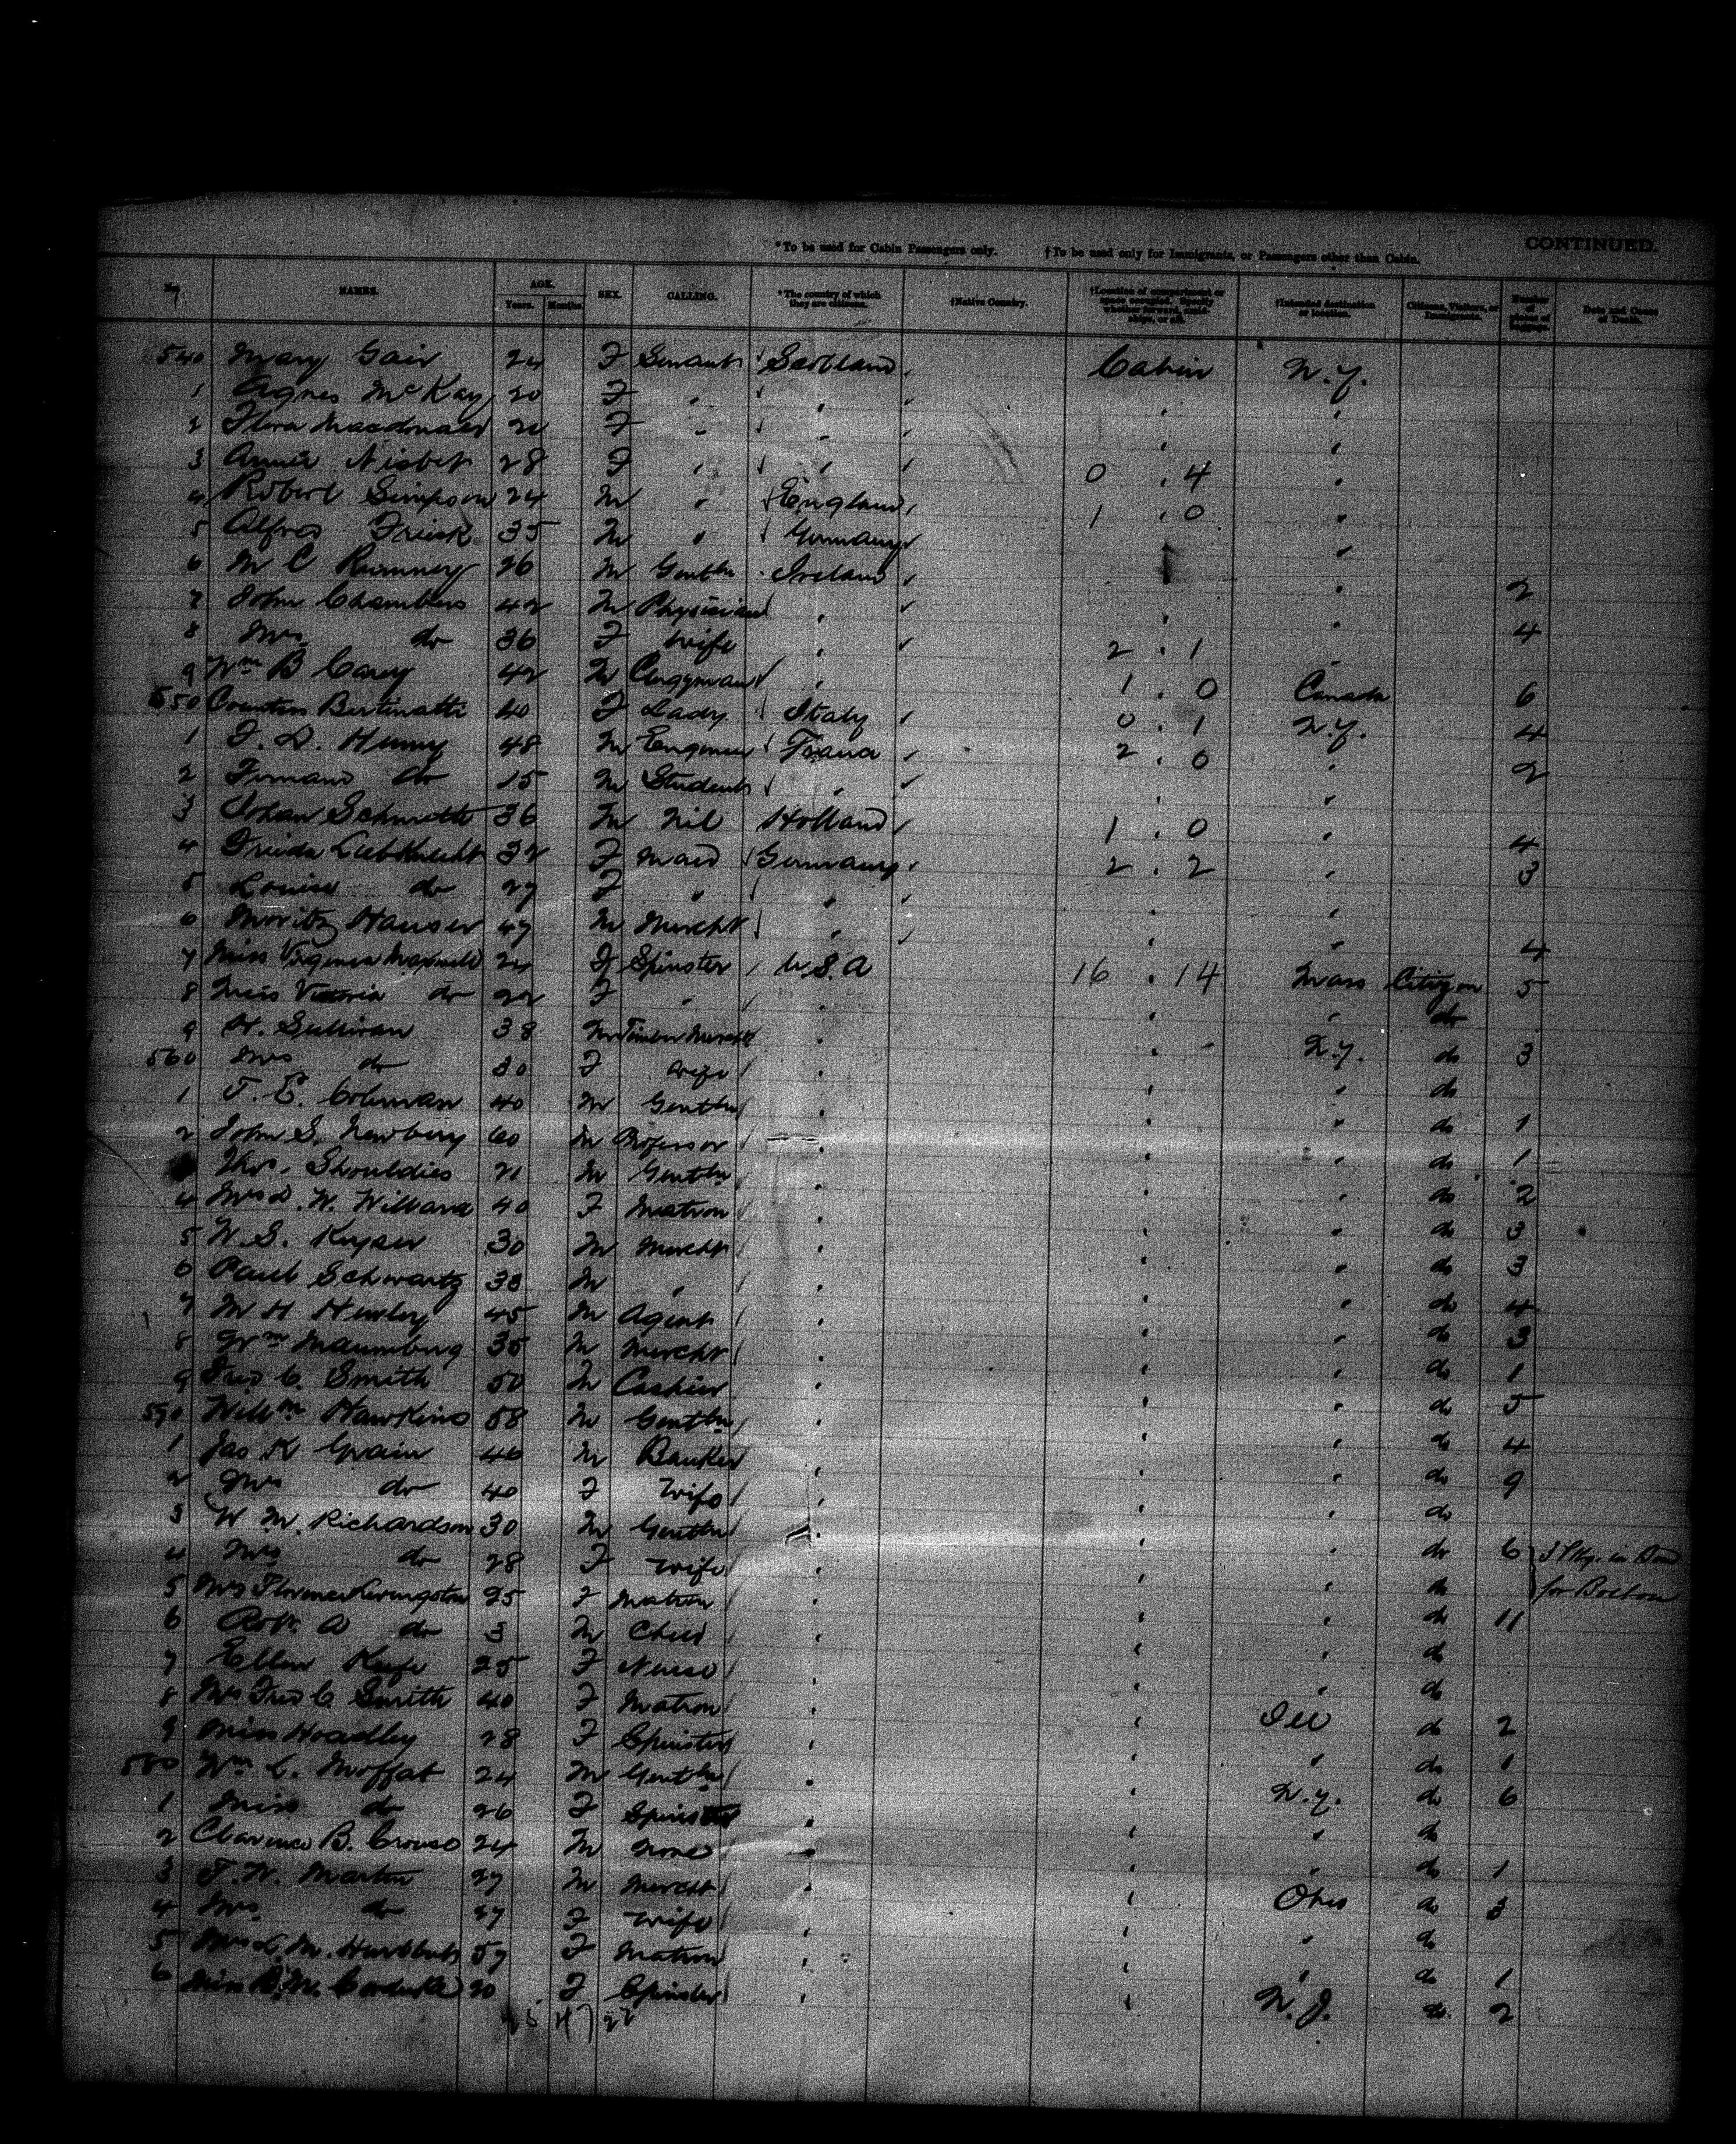 CONTINUED.
*To be used for Cabin Passengers only. †To be used only for Immigrants, or Passengers other than Cabin.
No. NAMES. AGE. Years. Months SEX. CALLING. *The country of which they are citizens. †Native Country. †Location of compartment or space occupied. †Intended destination or location. Citizens, Visitors, or Immigrants. Number of pieces of Baggage. Date and Cause of Death.
540 Mary Gair 24 F Servant Scotland Cabin N.Y.
1 Agnes McKay 20 F " " " "
2 Flora Macdonald F " " " "
3 Annie Nisbet 28 F " " 0 " 4 "
4 Robert Simpson 24 M " England 1 " 0 "
5 Alfred 35 M " Germany "
6 M C Rumney 26 M Gentln Ireland " 2
7 John Chambers 42 M Physician " " " 4
8 Mrs do 36 F Wife " 2 " 1 "
9 Wm B Carey 42 M Clergyman " 1 " 0 Canada 6
550 Countess Bertinatti 40 F Lady Italy 0 " 1 N.Y. 4
1 48 M Engineer 2 " 0 " 2
2 do 15 M Student " " "
3 Johan 36 M Nil Holland 1 " 0 " 4
4 Frieda Liebknecht 32 F Maid Germany 2 " 2 " 3
5 Louise do 27 F " " " "
6 Moritz Hauser 47 M Mercht " " " 4
7 Miss Virginia 24 F Spinster U.S.A 16 " 14 Mass Citizen 5
8 Miss Victoria do 22 F " " " " do
9 H. Sullivan 38 M Timber Mercht " " N.Y. do 3
560 Mrs do 30 F Wife " " " do
1 T. E. Coleman 40 M Gentln " " " do 1
2 John S. Newbery 60 M Professor " " " do 1
Thos. Shouldies 21 M Gentln " " " do 2
4 Mrs D. W. Willard 40 F Matron " " " do 3
5 W. S. Keyser 30 M Mercht " " " do 3
6 Paul Schwartz M " " " " do 4
7 M H Hurley 45 M Agent " " " do 3
8 Wm Naumburg 35 M Mercht " " " do 1
9 Fred C. Smith 50 M Cashier " " " do 5
570 Willm Hawkins 58 M Gentln " " " do 4
1 Jas K 46 M Banker " " " do 9
2 Mrs do 40 F Wife " " " do
3 W M. Richardson 30 M Gentln " " " do 6 3 Pkg. in
4 Mrs do 28 F Wife " " " do for Boston
5 Mrs Florence Livingston 25 F Matron " " " do 11
6 Robt. A do 3 M Child " " " do
7 Ellen Keefe 25 F Nurse " " " do
8 Mrs Fred C. Smith 40 F Matron " " Ill do 2
9 Miss Hoadley 28 F Spinster " " " do 1
580 Wm L. Moffat 24 M Gentln " " N.Y. do 6
1 Miss do 26 F Spinster " " " do
2 Clarence B. Crouse 24 M None " " " do 1
3 T. W. Martin 27 M Mercht " " Ohio do 3
4 Mrs do 27 F Wife " " " do
5 Mrs L. M. Hurlbut 57 F Matron " " " do 1
6 Miss 20 F Spinster " " N.J. do 2